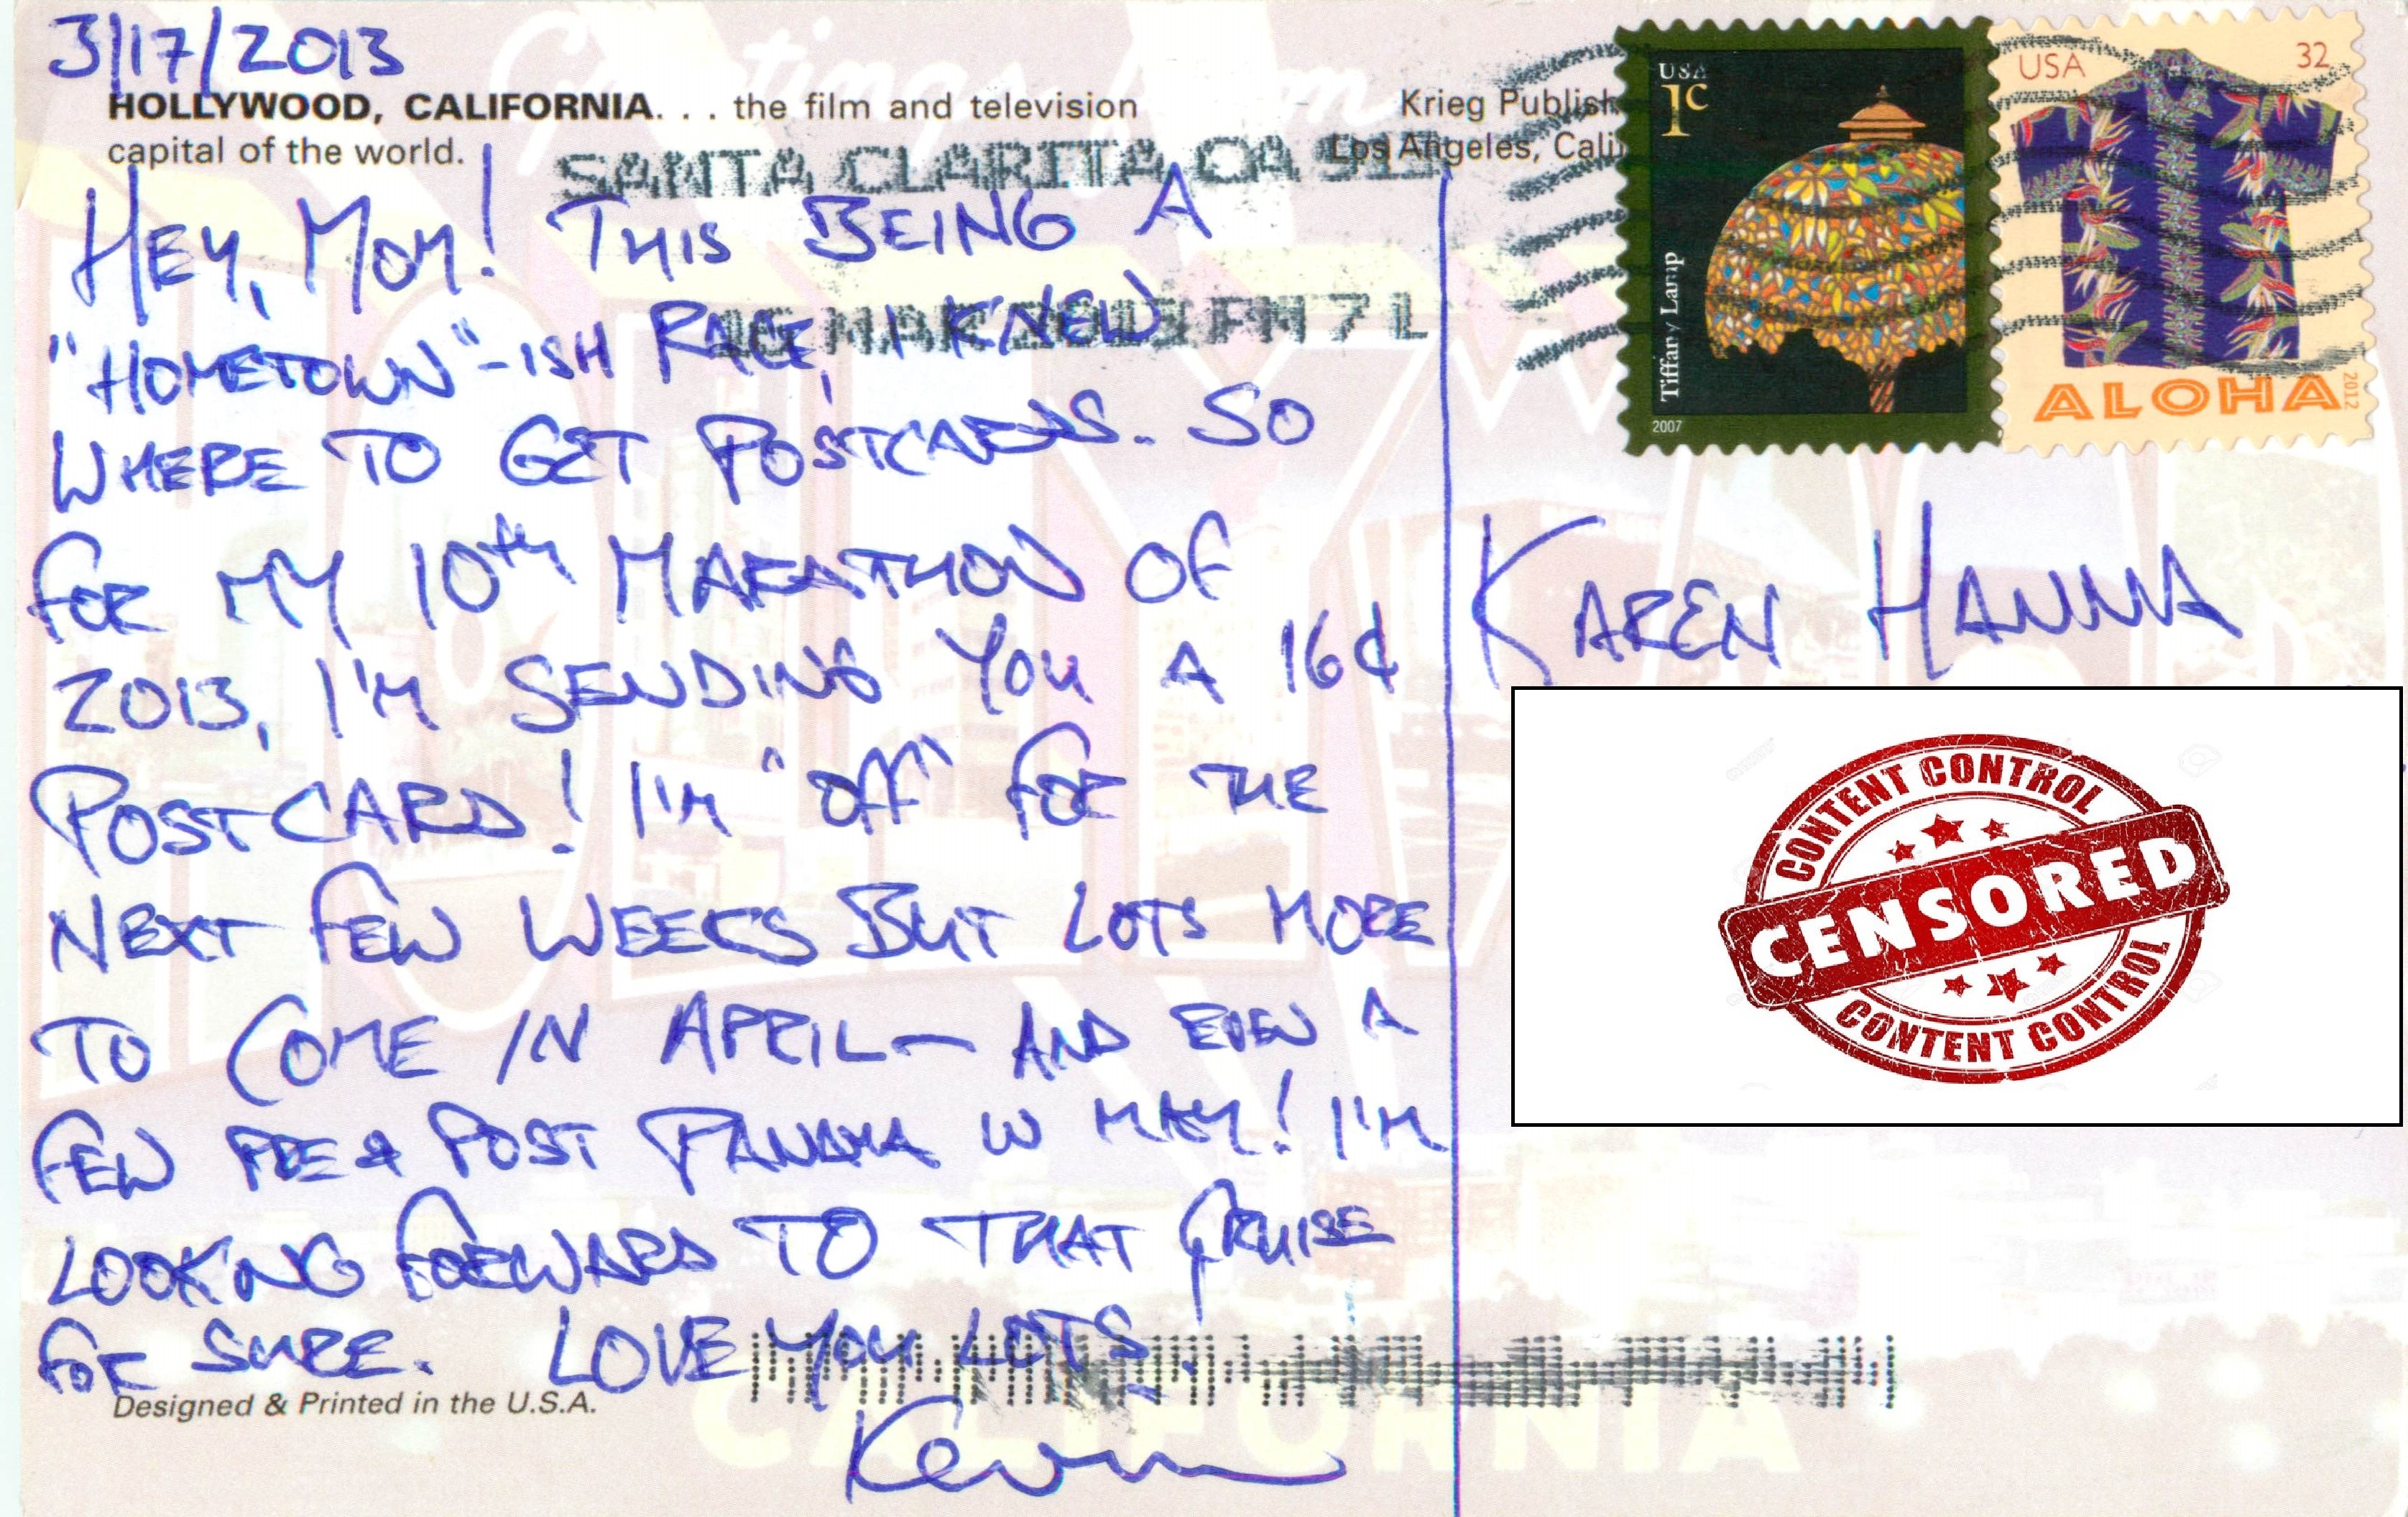 3/17/2013
HOLLYWOOD, CALIFORNIA. . . the film and television
capital of the world.
Krieg Publish
Los Angeles, Cali
SANTA CLARITA CA
MAR 2013 PM 7 L
HEY, MOM! THIS BEING A
"HOMETOWN"-ISH RACE, I KNEW
WHERE TO GET POSTCARDS. SO
FOR MY 10th MARATHON OF
2013, I'M SENDING YOU A 16¢
POSTCARD! I'M "OFF" FOR THE
NEXT FEW WEEKS BUT LOTS MORE
TO COME IN APRIL — AND EVEN A
FEW PRE & POST PANAMA IN MAY! I'M
LOOKING FORWARD TO THAT CRUISE
FOR SURE. LOVE YOU LOTS.
Kevin
Designed & Printed in the U.S.A.
USA
1c
Tiffany Lamp
2007
USA 32
ALOHA
2012
KAREN HANNA
CONTENT CONTROL
CENSORED
CONTENT CONTROL
Greetings from
HOLLYWOOD
CALIFORNIA